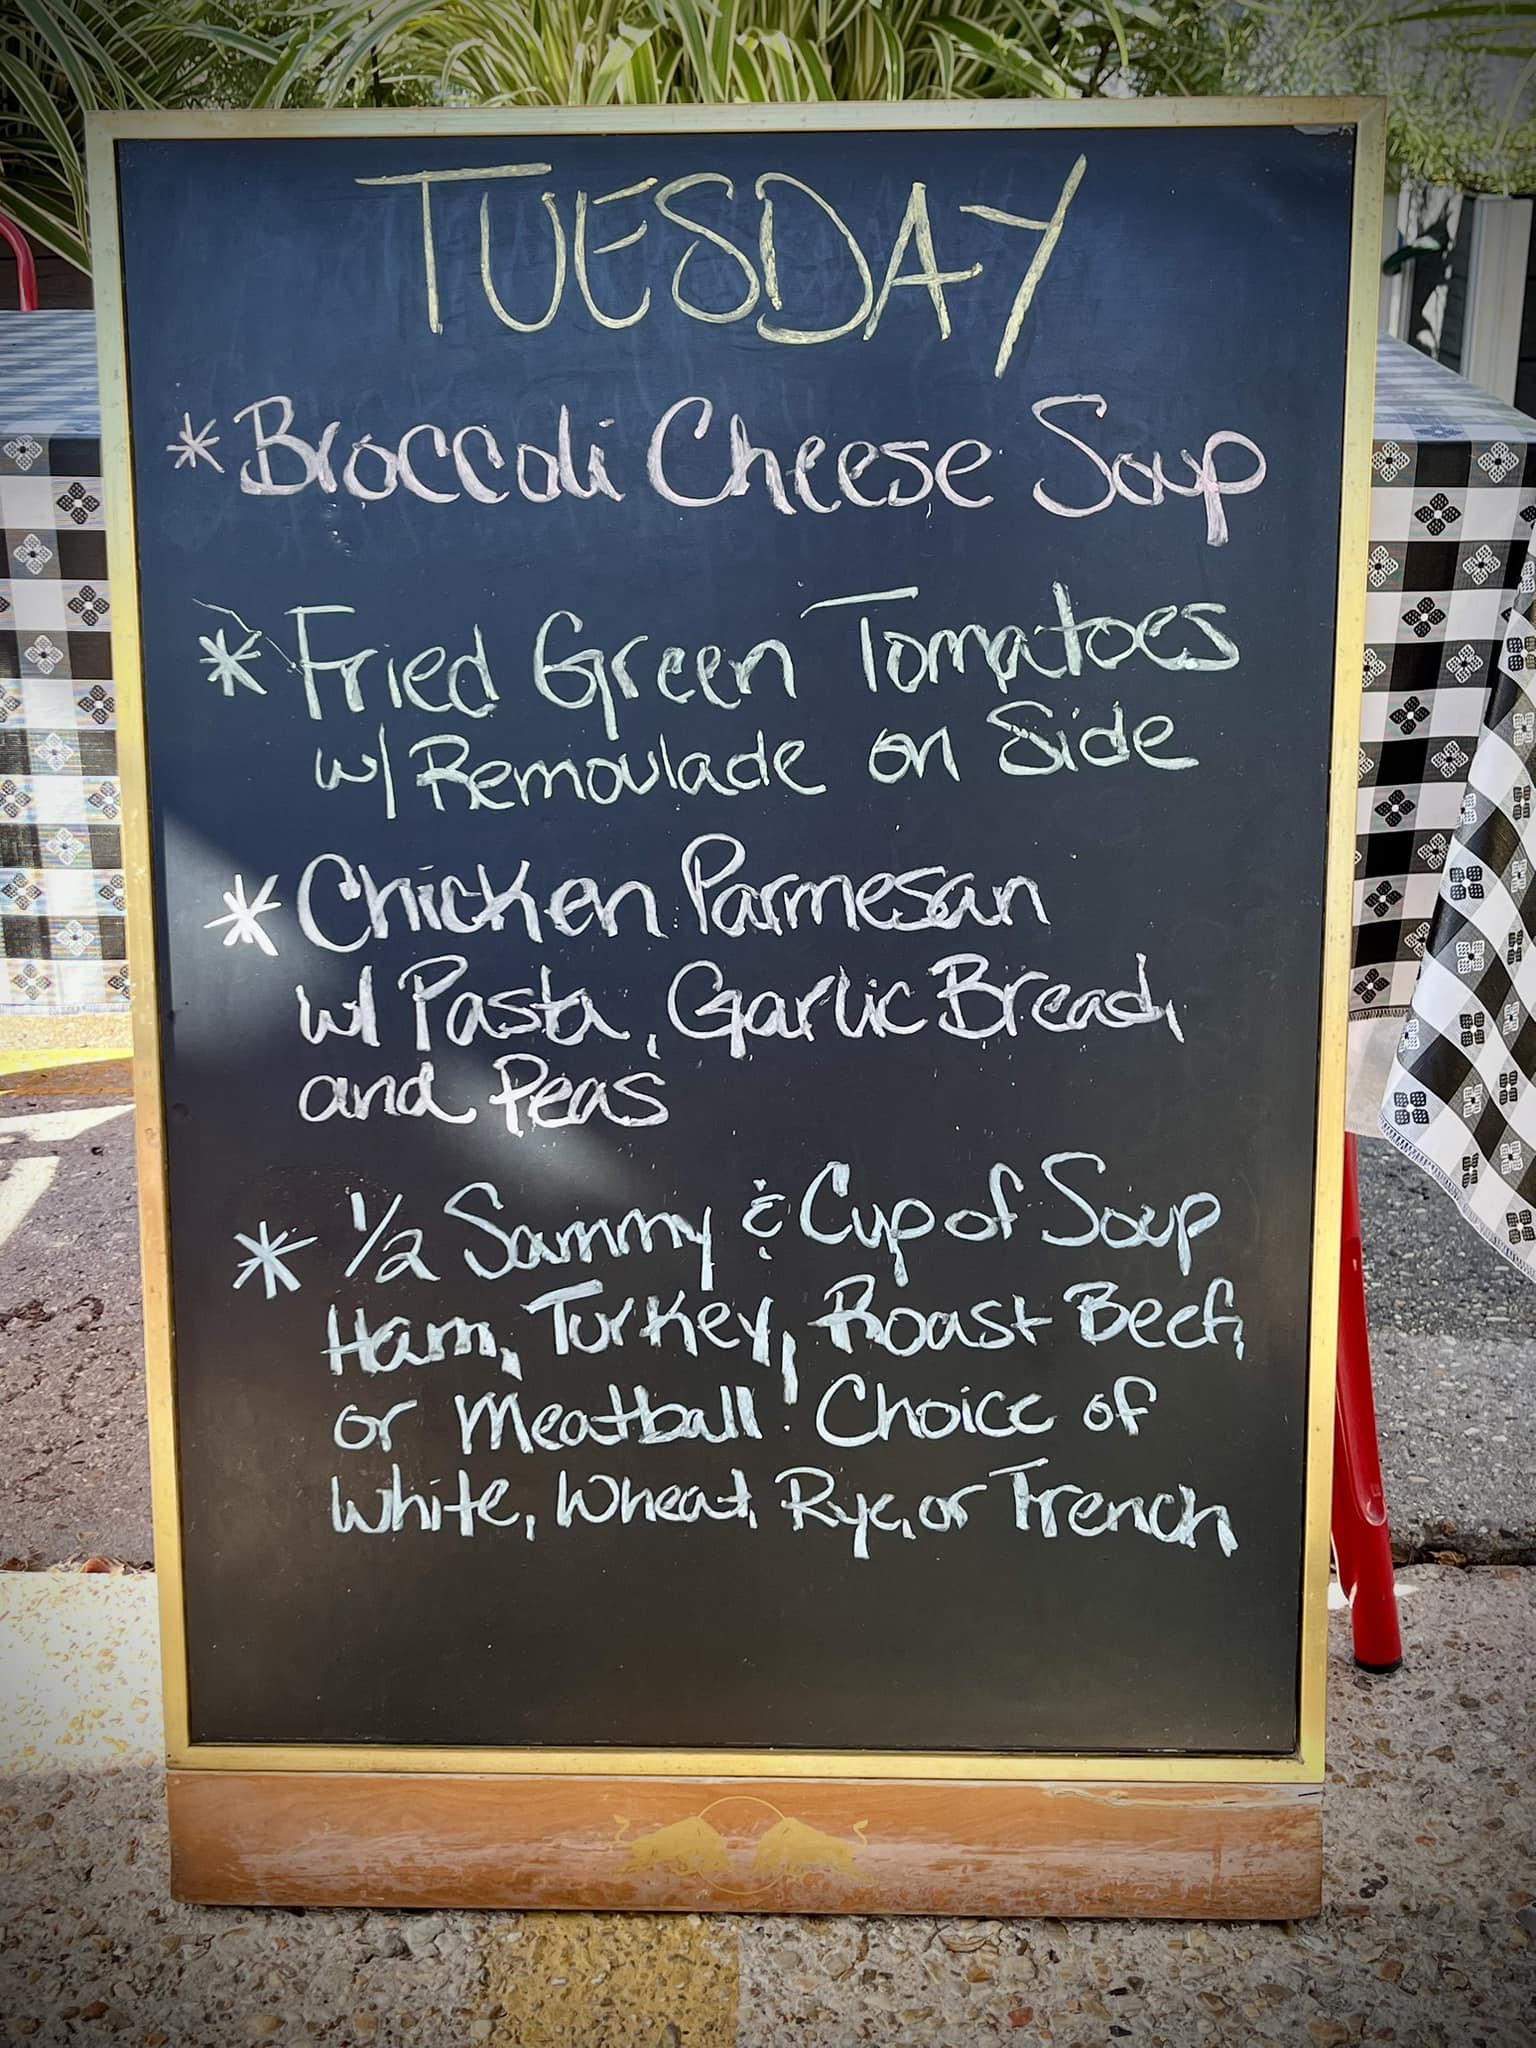 TUESDAY
* Broccoli Cheese Soup
* Fried Green Tomatoes
w/ Remoulade on Side
* Chicken Parmesan
w/ Pasta, Garlic Bread,
and Peas
* 1/2 Sammy & Cup of Soup
Ham, Turkey, Roast Beef,
or Meatball! Choice of
White, Wheat, Rye, or French